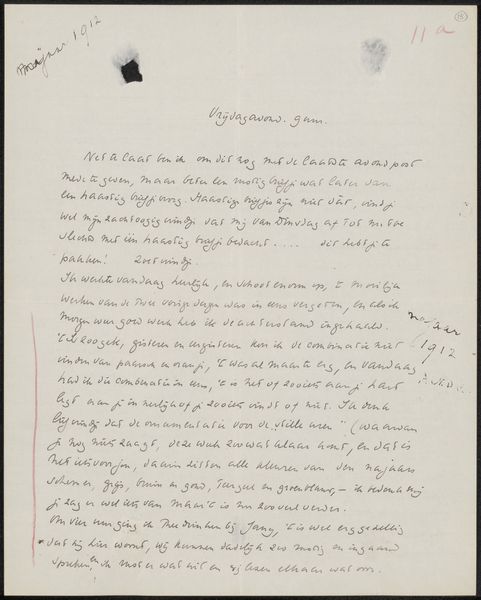 najaar 1912
11a
Vrijdagavond. 9 uur.
Net te laat ben ik om dit nog met de laatste avondpost
mede te geven, maar beter een rustig briefje wat later dan
een haastig briefje vroeg. Haastige briefjes zijn niet
wel mijn vindje dat mij van Dinsdag af tot nu toe
slechts met één haastig briefje bedacht ..... dit hebt je te
pakken! vindje.
Ik werkte vandaag heerlijk, en schoot enorm op, 't
werken van de twee vorige dagen was in eens vergeten, en als ik
morgen weer goed werk heb ik de achterstand ingehaald.
najaar
't is zoo gek, gisteren en eergisteren kon ik de combinatie niet
1912
vinden van paarsch en oranje, 't was al maar te erg, en vandaag
had ik die combinatie in eens, 't is net of zooiets aan je hart
ligt aan je of je zooiets vindt of niet. Ik denk
dat de ornamentatie voor de "stille uren" (waarvan
je nog niets zaagt, deze week zoo wat klaar komt, en dat is
net iets voor jou, daarin zitten alle kleuren van den najaars
schemer, grijs, bruin en goud, en groenblauw, — ik bedenk mij
je zag er wel iets van maar 't is nu zoo veel verder.
Om vier uur ging ik thee drinken bij Jany, 't is wel erg gezellig
dat hij hier woont, wij kunnen dadelijk zoo rustig en ingaand
spreken, en ik moet er wat uit en wij lezen elkaar wat voor.